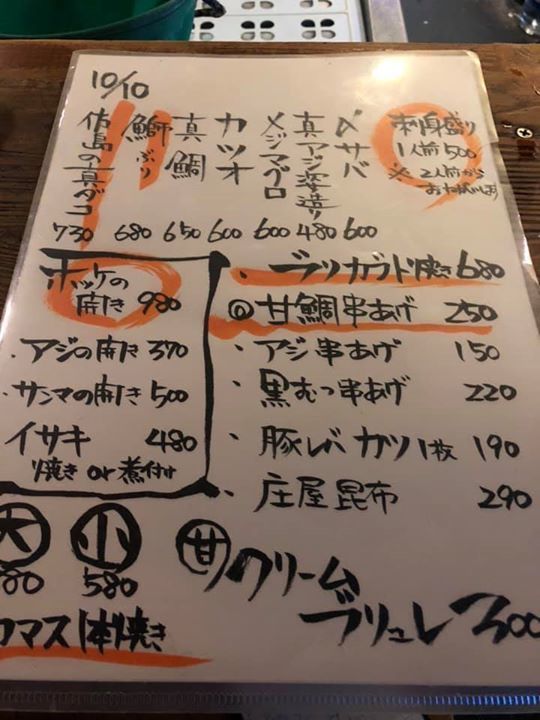 10/10
刺身盛り
1人前500
※2人前から
〆サバ 600
真アジ姿造り 480
メジマグロ 600
カツオ 600
真鯛 650
鰤ぶり 680
佐島の真ダコ 730
ホッケの
開き 980
・アジの開き 370
・サンマの開き 500
イサキ 480
焼き or 煮付け
・ブリガウド焼き 680
◎甘鯛串あげ 250
・アジ串あげ 150
・黒むつ串あげ 220
・豚レバカツ1枚 190
・庄屋昆布 290
大 小
80 580
カマス1本焼き
甘 クリーム
ブリュレ 300